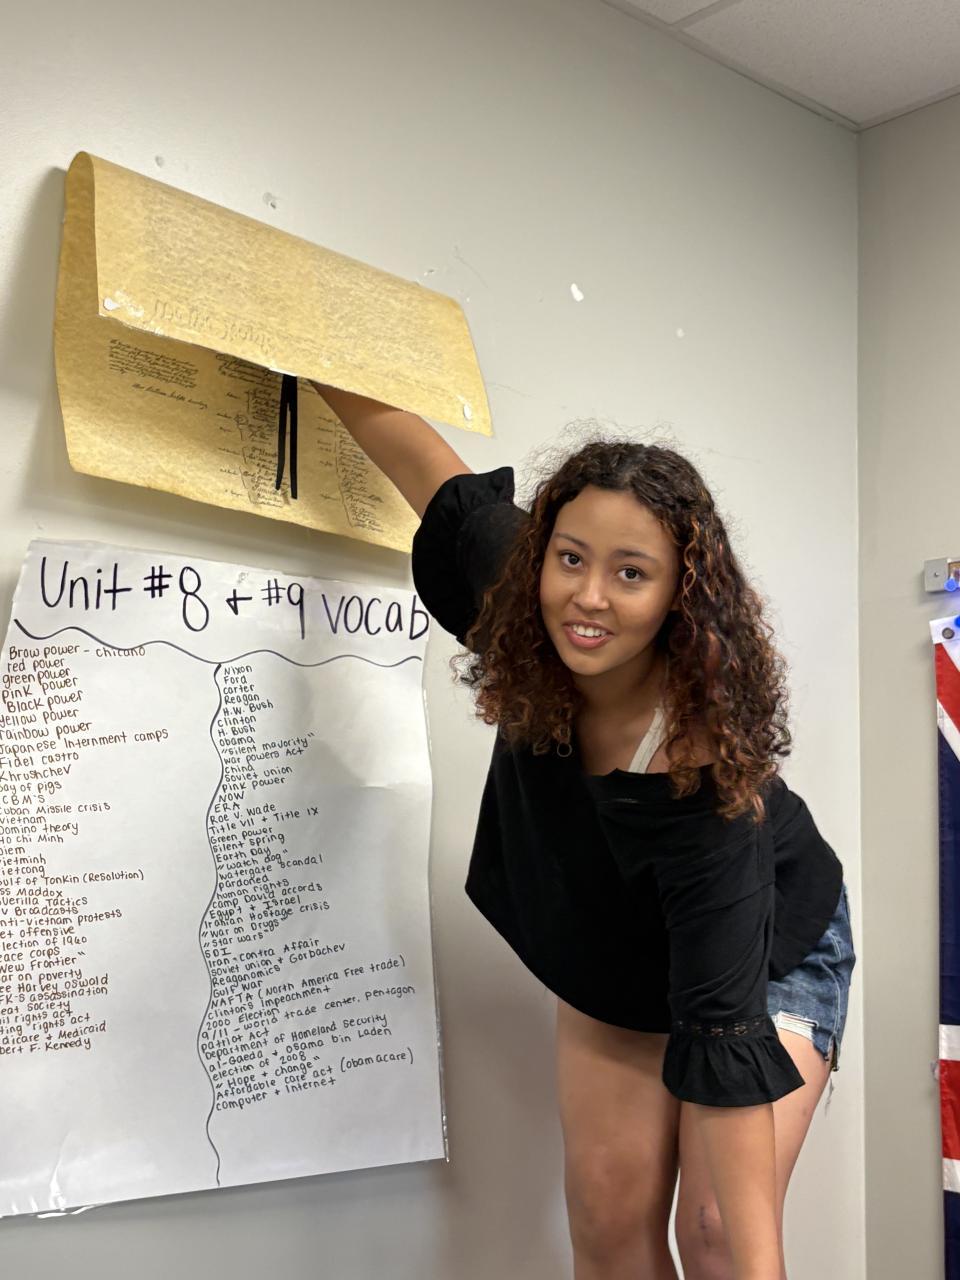 Unit #8 + #9 vocab
Brow power - chicano
red power
green power
pink power
Black power
yellow power
rainbow power
Japanese Internment camps
Fidel castro
Khrushchev
ay of pigs
CBM'S
uban Missile crisis
vietnam
Domino theory
Ho chi Minh
Diem
ietminh
ietcong
ulf of Tonkin (Resolution)
ss Maddox
uerilla Tactics
v Broadcasts
nti-Vietnam protests
et offensive
lection of 1960
eace corps
New Frontier"
ar on poverty
ee Harvey oswald
FK-s assassination
eat society
il rights act
ting rights act
dicare + Medicaid
bert F. Kennedy
Nixon
Ford
carter
Reagan
H.W. Bush
clinton
H. Bush
obama
"silent majority"
war powers Act
china
soviet union
pink power
NOW
ERA
Roe v. wade
Title VII + Title IX
Green power
silent spring
Earth Day
"watch dog"
watergate scandal
pardoned
human rights
camp David accords
Egypt + Israel
Iranian Hostage crisis
"war on Drugs"
"star wars"
SDI
Iran-contra Affair
soviet union + Gorbachev
Reaganomics
Gulf war
NAFTA (North America Free trade)
clinton's Impeachment
2000 Election
9/11 - world trade center, pentagon
patriot Act
Department of Homeland security
al-Gaeda + osama bin Laden
election of 2008
"Hope + change"
Affordable care act (obamacare)
computer + Internet